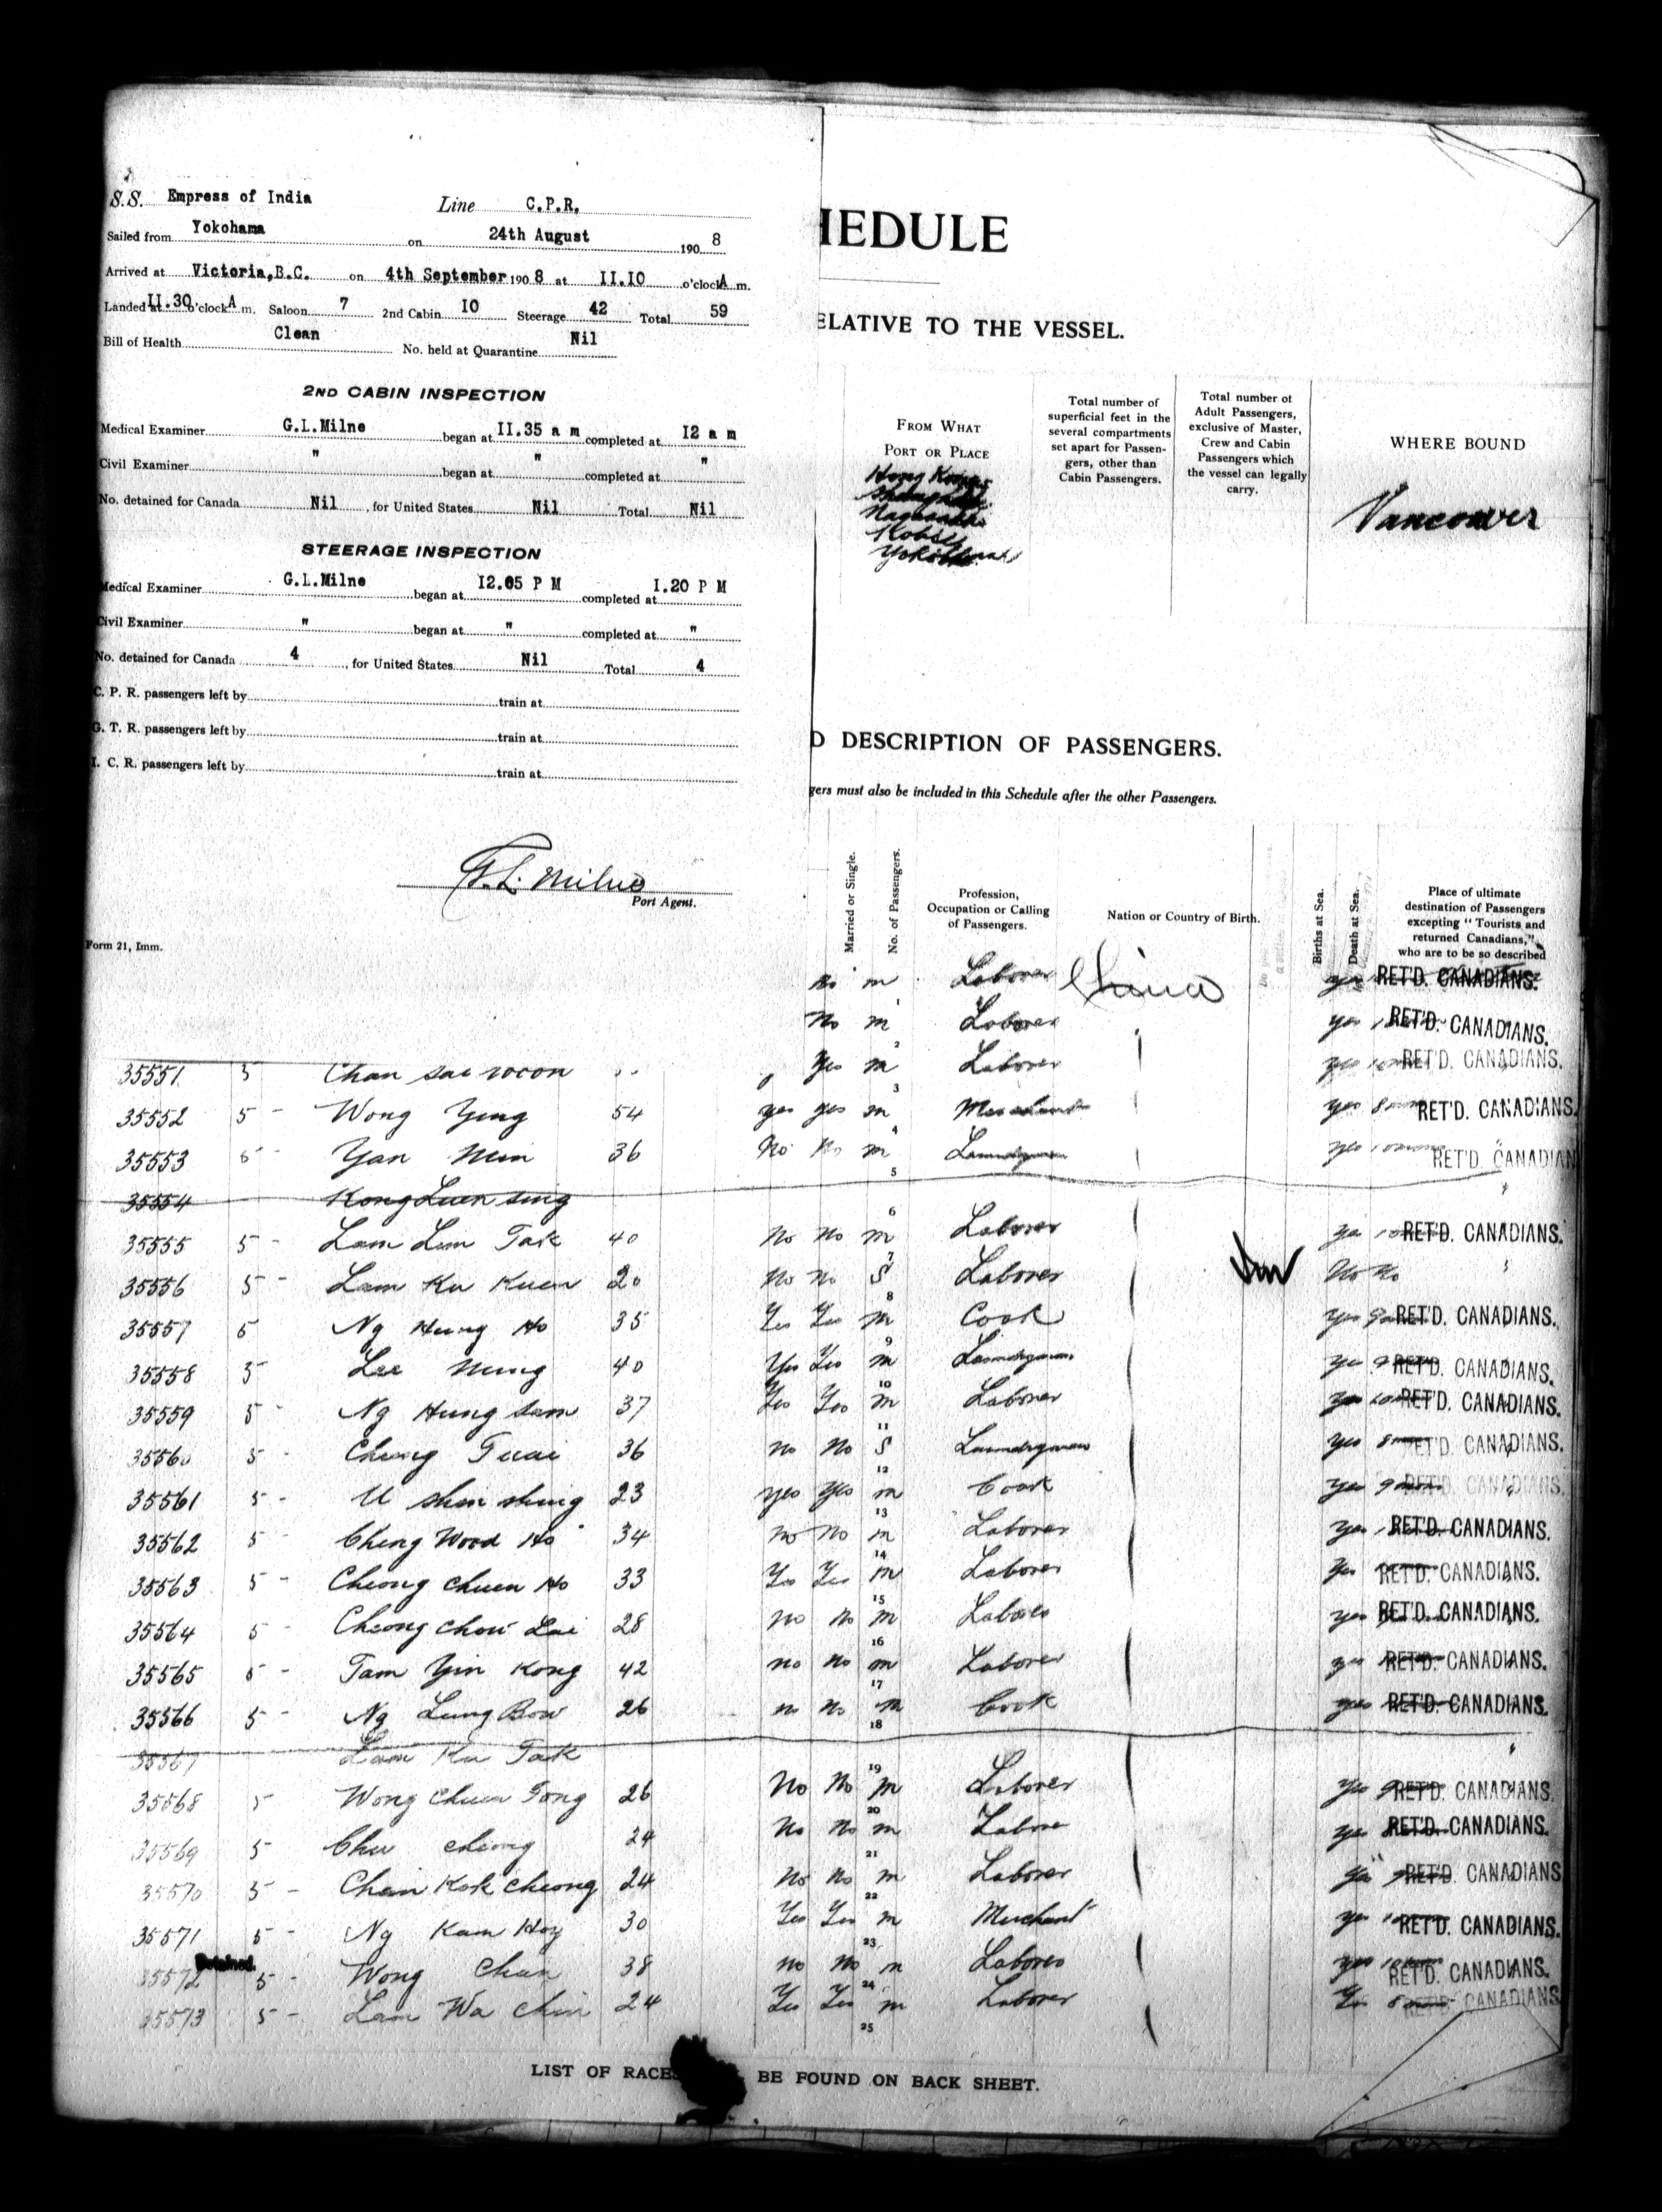 S.S. Empress of India Line C.P.R.
Sailed from Yokohama on 24th August 1908
Arrived at Victoria,B.C. on 4th September 1908 at II.IO o'clock A m.
Landed at II.30 o'clock A m. Saloon 7 2nd Cabin IO Steerage 42 Total 59
Bill of Health Clean No. held at Quarantine Nil
2ND CABIN INSPECTION
Medical Examiner G.L.Milne began at II.35 a m completed at I2 a m
Civil Examiner " began at " completed at "
No. detained for Canada Nil , for United States Nil Total Nil
STEERAGE INSPECTION
Medical Examiner G.L.Milne began at I2.05 P M completed at I.20 P M
Civil Examiner " began at " completed at "
No. detained for Canada 4 , for United States Nil Total 4
C. P. R. passengers left by train at
G. T. R. passengers left by train at
I. C. R. passengers left by train at
G.L. Milne
Port Agent.
Form 21, Imm.
HEDULE
ELATIVE TO THE VESSEL.
FROM WHAT PORT OR PLACE
Total number of superficial feet in the several compartments set apart for Passengers, other than Cabin Passengers.
Total number of Adult Passengers, exclusive of Master, Crew and Cabin Passengers which the vessel can legally carry.
WHERE BOUND
Hong Kong
Shanghai
Nagasaki
Kobe
Yokohama
Vancouver
D DESCRIPTION OF PASSENGERS.
gers must also be included in this Schedule after the other Passengers.
Married or Single.
No. of Passengers.
Profession, Occupation or Calling of Passengers.
Nation or Country of Birth.
Births at Sea.
Death at Sea.
Place of ultimate destination of Passengers excepting "Tourists and returned Canadians," who are to be so described
no m Laborer China yes RET'D. CANADIANS.
1 No m Laborer yes RET'D. CANADIANS.
35551 5 Chan sae woon 2 yes m Laborer yes RET'D. CANADIANS.
35552 5 - Wong Ying 54 yes yes 3 m Merchant yes 8 RET'D. CANADIANS.
35553 5 - Yan Min 36 No No 4 m Laundryman yes RET'D. CANADIAN
5
35554 Kong Luen sing
35555 5 - Lam Lim Tak 40 No No 6 m Laborer yes RET'D. CANADIANS.
35556 5 - Lam Ku Kuen 20 No no 7 S Laborer No No
35557 5 Ng Hung Ho 35 Yes Yes 8 m Cook Yes 9 RET'D. CANADIANS.
35558 5 Lee Mung 40 Yes Yes 9 m Laundryman Yes 9 RET'D. CANADIANS.
35559 5 - Ng Hung Sam 37 Yes Yes 10 m Laborer yes RET'D. CANADIANS.
35560 5 - Cheong 36 no No 11 S Laundryman yes 8 RET'D. CANADIANS.
35561 5 - U shin shing 23 yes yes 12 m Cook yes 9 RET'D. CANADIANS.
35562 5 Cheng Wood Ho 34 no No 13 m Laborer yes RET'D. CANADIANS.
35563 5 - Cheong Chuen Ho 33 Yes Yes 14 m Laborer yes RET'D. CANADIANS.
35564 5 - Cheong Chow Lai 28 no no 15 m Laborer yes RET'D. CANADIANS.
35565 5 - Tam Yin Kong 42 no no 16 m Laborer yes RET'D. CANADIANS.
35566 5 - Ng Lung Bow 26 no no 17 m Cook yes RET'D. CANADIANS.
18
35567 Lam Ku Tak
35568 5 Wong Chuen Tong 26 No No 19 m Laborer Yes 9 RET'D. CANADIANS.
35569 5 - Chu cheong 24 No No 20 m Labore yes RET'D. CANADIANS.
35570 5 - Chan Kok Cheong 24 No No 21 m Laborer yes RET'D. CANADIANS
35571 5 - Ng Kam Hoy 30 Yes Yes 22 m Merchant yes RET'D. CANADIANS.
Detained.
35572 5 - Wong Chan 38 no No 23 m Laborer yes RET'D. CANADIANS.
35573 5 - Lam Wa Chin 24 Yes Yes 24 m Laborer Yes 8 RET'D. CANADIANS
25
LIST OF RACES BE FOUND ON BACK SHEET.